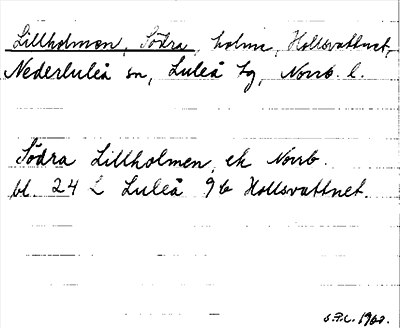 Lillholmen, Södra, holme, Hollsvattnet,
Nederluleå sn, Luleå tg, Norrb. l.
Södra Lillholmen, ek Norrb.
bl. 24 L Luleå 9b Hollsvattnet.
1960.